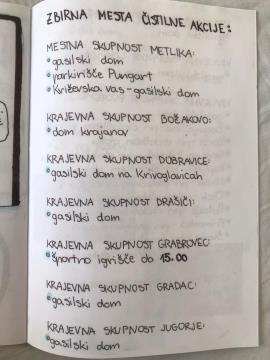 ZBIRNA MESTA ČISTILNE AKCIJE:
MESTNA SKUPNOST METLIKA:
• gasilski dom
• parkirišče Pungart
• Križevska vas - gasilski dom
KRAJEVNA SKUPNOST BOŽAKOVO:
• dom krajanov
KRAJEVNA SKUPNOST DOBRAVICE:
• gasilski dom na Krivoglavicah
KRAJEVNA SKUPNOST DRAŠIČI:
• gasilski dom
KRAJEVNA SKUPNOST GRABROVEC:
• Športno igrišče do 15.00
KRAJEVNA SKUPNOST GRADAC:
• gasilski dom
KRAJEVNA SKUPNOST JUGORJE:
• gasilski dom